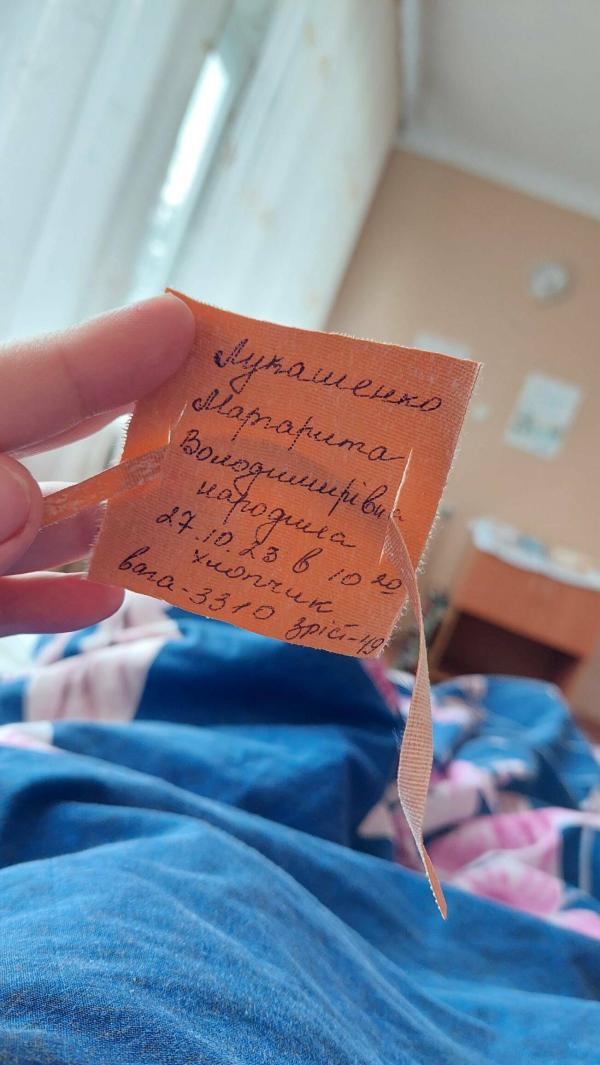 Лукашенко
Маргарита
Володимирівна
народила
27.10.23 в 10 20
хлопчик
вага-3310 зріст-49